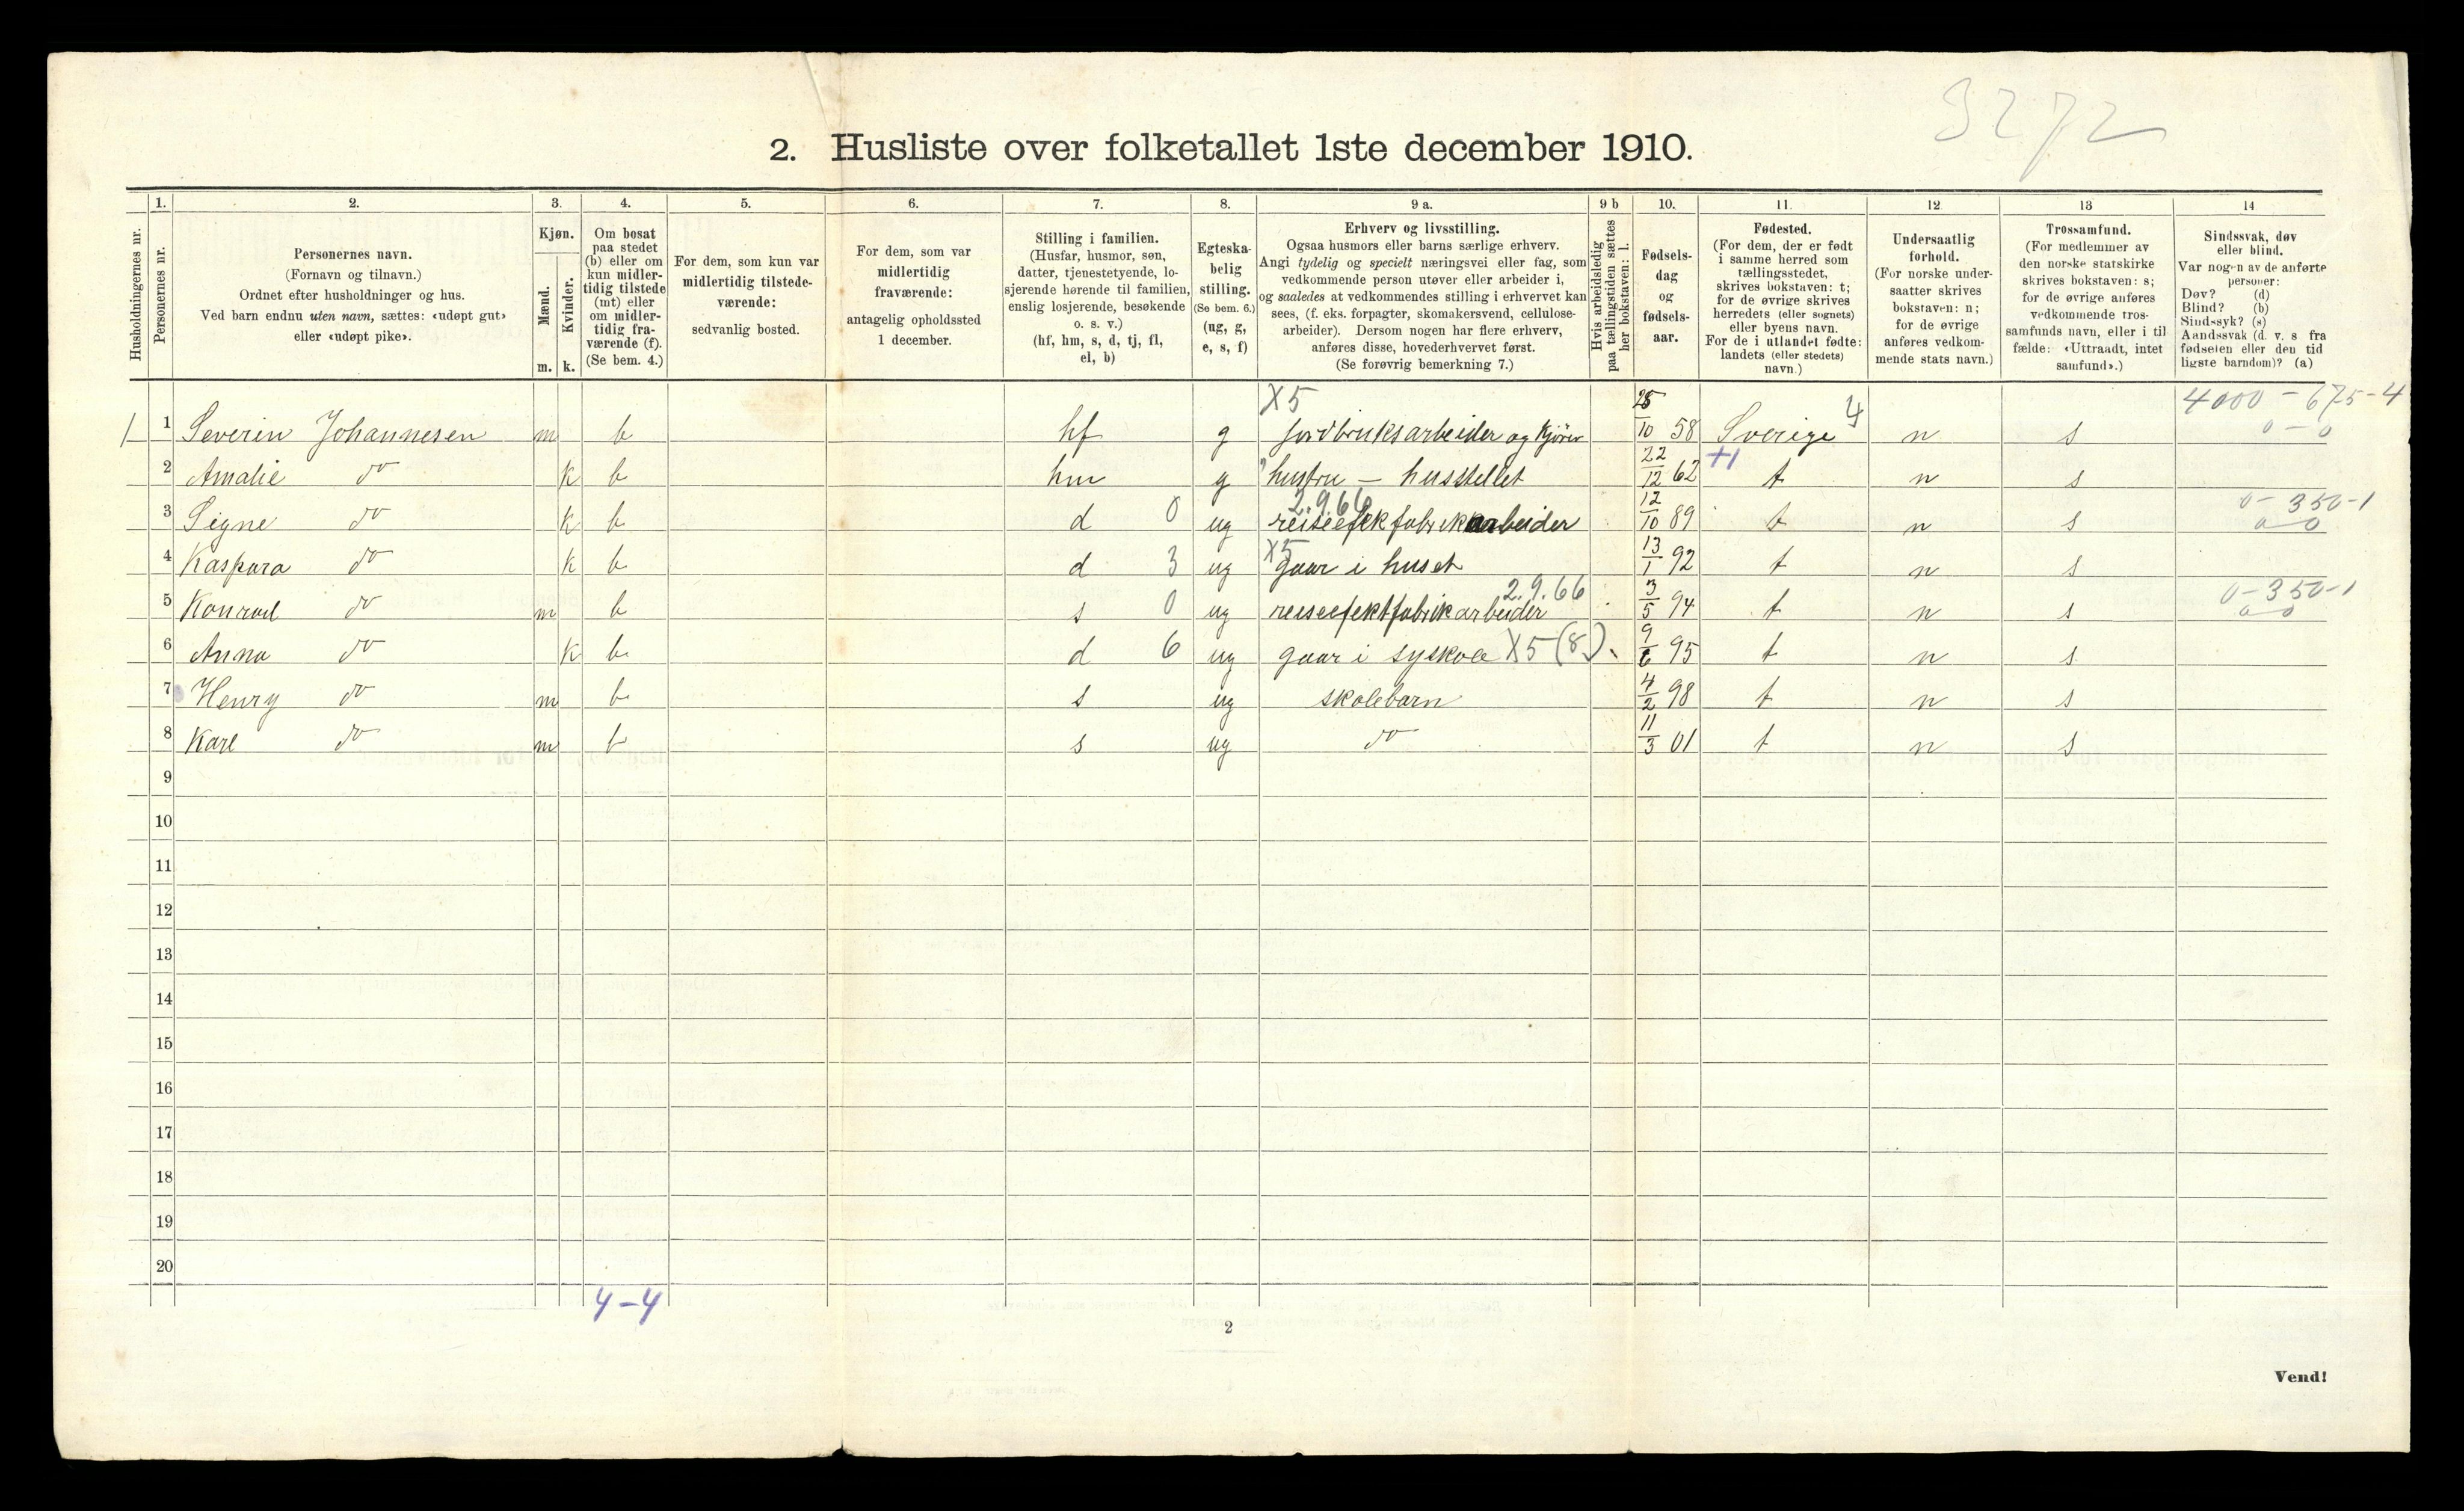 3272
2. Husliste over folketallet 1ste december 1910.
Husholdningernes nr.
1.
Personernes nr.
2.
Personernes navn.
(Fornavn og tilnavn.)
Ordnet efter husholdninger og hus.
Ved barn endnu uten navn, sættes: «udøpt gut»
eller «udøpt pike».
3.
Kjøn.
Mænd.
Kvinder.
m. k.
4.
Om bosat
paa stedet
(b) eller om
kun midler-
tidig tilstede
(mt) eller
om midler-
tidig fra-
værende (f).
(Se bem. 4.)
5.
For dem, som kun var
midlertidig tilstede-
værende:
sedvanlig bosted.
6.
For dem, som var
midlertidig
fraværende:
antagelig opholdssted
1 december.
7.
Stilling i familien.
(Husfar, husmor, søn,
datter, tjenestetyende, lo-
sjerende hørende til familien,
enslig losjerende, besøkende
o. s. v.)
(hf, hm, s, d, tj, fl,
el, b)
8.
Egteska-
belig
stilling.
(Se bem. 6.)
(ug, g,
e, s, f)
9 a.
Erhverv og livsstilling.
Ogsaa husmors eller barns særlige erhverv.
Angi tydelig og specielt næringsvei eller fag, som
vedkommende person utøver eller arbeider i,
og saaledes at vedkommendes stilling i erhvervet kan
sees, (f. eks. forpagter, skomakersvend, cellulose-
arbeider). Dersom nogen har flere erhverv,
anføres disse, hovederhvervet først.
(Se forøvrig bemerkning 7.)
9 b
Hvis arbeidsledig
paa tællingstiden sættes
her bokstaven: l.
10.
Fødsels-
dag
og
fødsels-
aar.
11.
Fødested.
(For dem, der er født
i samme herred som
tællingsstedet,
skrives bokstaven: t;
for de øvrige skrives
herredets (eller sognets)
eller byens navn.
For de i utlandet fødte:
landets (eller stedets)
navn.)
12.
Undersaatlig
forhold.
(For norske under-
saatter skrives
bokstaven: n;
for de øvrige
anføres vedkom-
mende stats navn.)
13
Trossamfund.
(For medlemmer av
den norske statskirke
skrives bokstaven: s;
for de øvrige anføres
vedkommende tros-
samfunds navn, eller i til
fælde: «Uttraadt, intet
samfund».)
14
Sindssvak, døv
eller blind.
Var nogen av de anførte
personer:
Døv? (d)
Blind? (b)
Sindssyk? (s)
Aandssvak (d. v. s fra
fødselen eller den tid
ligste barndom)? (a)
X5 4 4000 - 675-4
1 1 Severin Johannesen m b hf g jordbruksarbeider og kjörer 25/10 58 Sverige n s 0-0
+1
2 Amalie do k b hm g hustru - husstellet 22/12 62 t n s
2.9.66 0-350-1
3 Signe do k b d 0 ug reiseefekfabrikkarbeider 12/10 89 t n s 0 0
X5
4 Kaspara do k b d 3 ug gaar i huset 13/1 92 t n s
2.9.66 0-350-1
5 Konrad do m b s 0 ug reiseefektfabrikarbeider 3/5 94 t n s 0 0
6 Anna do k b d 6 ug gaar i syskole X5 (8) 9/6 95 t n s
7 Henry do m b s ug skolebarn 4/2 98 t n s
8 Karl do m b s ug do 11/3 01 t n s
9
10
11
12
13
14
15
16
17
18
19
20
4-4
2
Vend!